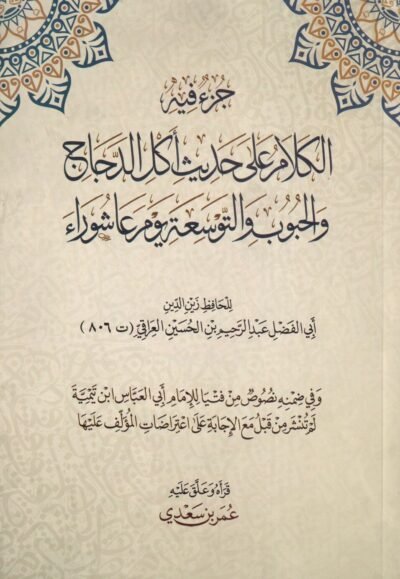 جُزْءٌ فِيْهِ
الكَلَامُ عَلَى حَدِيْثِ أَكْلِ الدَّجَاجِ
وَالحُبُوبِ وَالتَّوْسِعَةِ يَوْمَ عَاشُورَاءَ
لِلْحَافِظِ زَيْنِ الدِّينِ
أَبِي الفَضْلِ عَبْدِ الرَّحِيمِ بْنِ الحُسَيْنِ العِرَاقِيِّ (ت ٨٠٦)
وَفِي ضِمْنِهِ نُصُوصٌ مِنْ فُتْيَا لِلإِمَامِ أَبِي العَبَّاسِ ابْنِ تَيْمِيَّةَ
لَمْ تُنْشَرْ مِنْ قَبْلُ مَعَ الإِجَابَةِ عَلَى اعْتِرَاضَاتِ المُؤَلِّفِ عَلَيْهَا
قَرَأَهُ وَعَلَّقَ عَلَيْهِ
عُمَر بن سَعْدِي